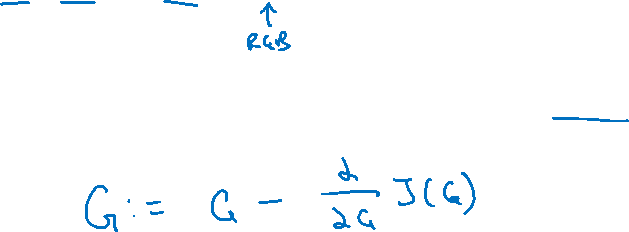 RGB
G := G - ∂/∂G J(G)